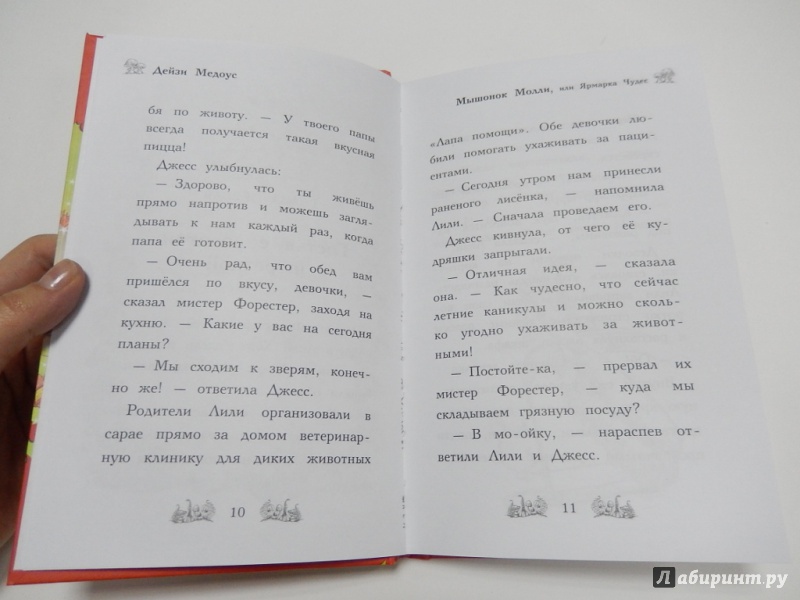 Дейзи Медоус
бя по животу. — У твоего папы
всегда получается такая вкусная
пицца!
Джесс улыбнулась:
— Здорово, что ты живёшь
прямо напротив и можешь загля-
дывать к нам каждый раз, когда
папа её готовит.
— Очень рад, что обед вам
пришёлся по вкусу, девочки, —
сказал мистер Форестер, заходя на
кухню. — Какие у вас на сегодня
планы?
— Мы сходим к зверям, конеч-
но же! — ответила Джесс.
Родители Лили организовали в
сарае прямо за домом ветеринар-
ную клинику для диких животных
10
Мышонок Молли, или Ярмарка Чудес
«Лапа помощи». Обе девочки лю-
били помогать ухаживать за паци-
ентами.
— Сегодня утром нам принесли
раненого лисёнка, — напомнила
Лили. — Сначала проведаем его.
Джесс кивнула, от чего её ку-
дряшки запрыгали.
— Отличная идея, — сказала
она. — Как чудесно, что сейчас
летние каникулы и можно сколь-
ко угодно ухаживать за живот-
ными!
— Постойте-ка, — прервал их
мистер Форестер, — куда мы
складываем грязную посуду?
— В мо-ойку, — нараспев от-
ветили Лили и Джесс.
11
Лабиринт.ру